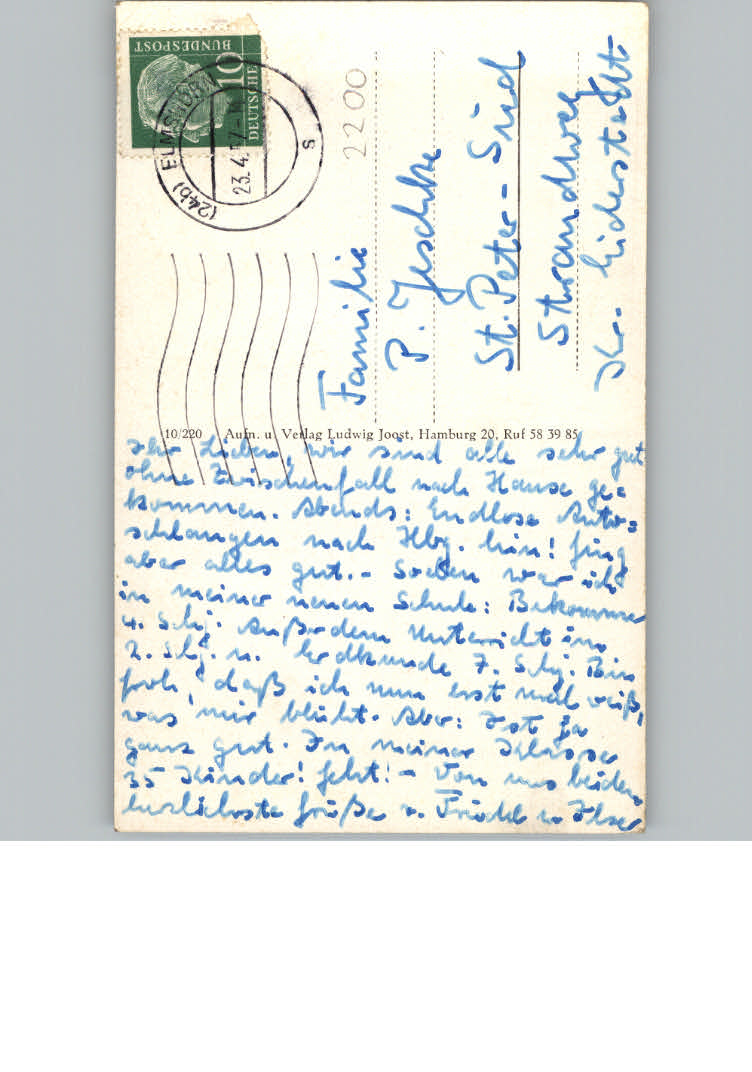 DEUTSCHE
BUNDESPOST
10
(24b) ELMSHORN
23.4.57
s
2200
Familie
P. Jeschke
St. Peter-Süd
Strandweg
Kr. Eiderstedt
10/220 Aufn. u. Verlag Ludwig Joost, Hamburg 20, Ruf 58 39 85
Ihr Lieben, wir sind alle sehr gut
ohne Zwischenfall nach Hause ge=
kommen. Abends: Endlose Auto=
schlangen nach Hbg. hin! Ging
aber alles gut. - Soeben war ich
in meiner neuen Schule: Bekomme
4. Schj. Außerdem Unterricht im
2. Schj. u. Erdkunde 7. Schj. Bin
froh, daß ich nun erst mal weiß,
was mir blüht. Aber: Ist ja
ganz gut. In meiner Klasse
35 Kinder! Geht! - Von uns beiden
herzlichste Grüße v. Friedel u. Ilse